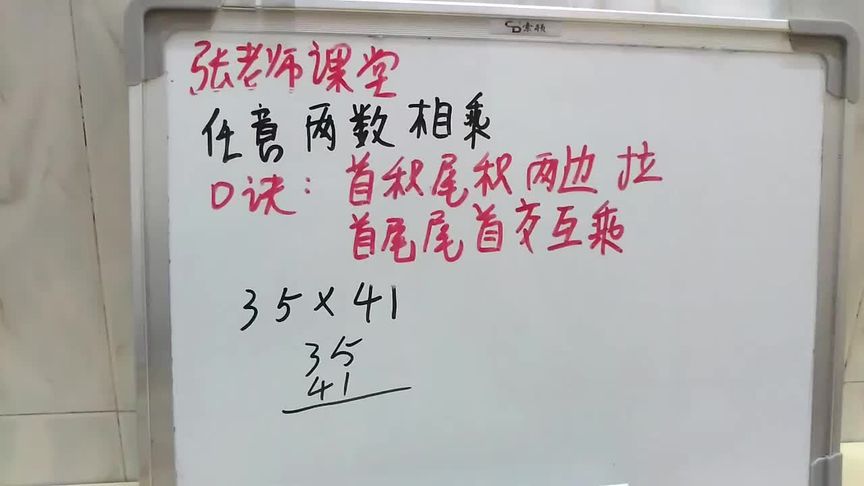 索顿
张老师课堂
任意两数相乘
口诀：首积尾积两边拉
首尾尾首交互乘
35×41
35
41